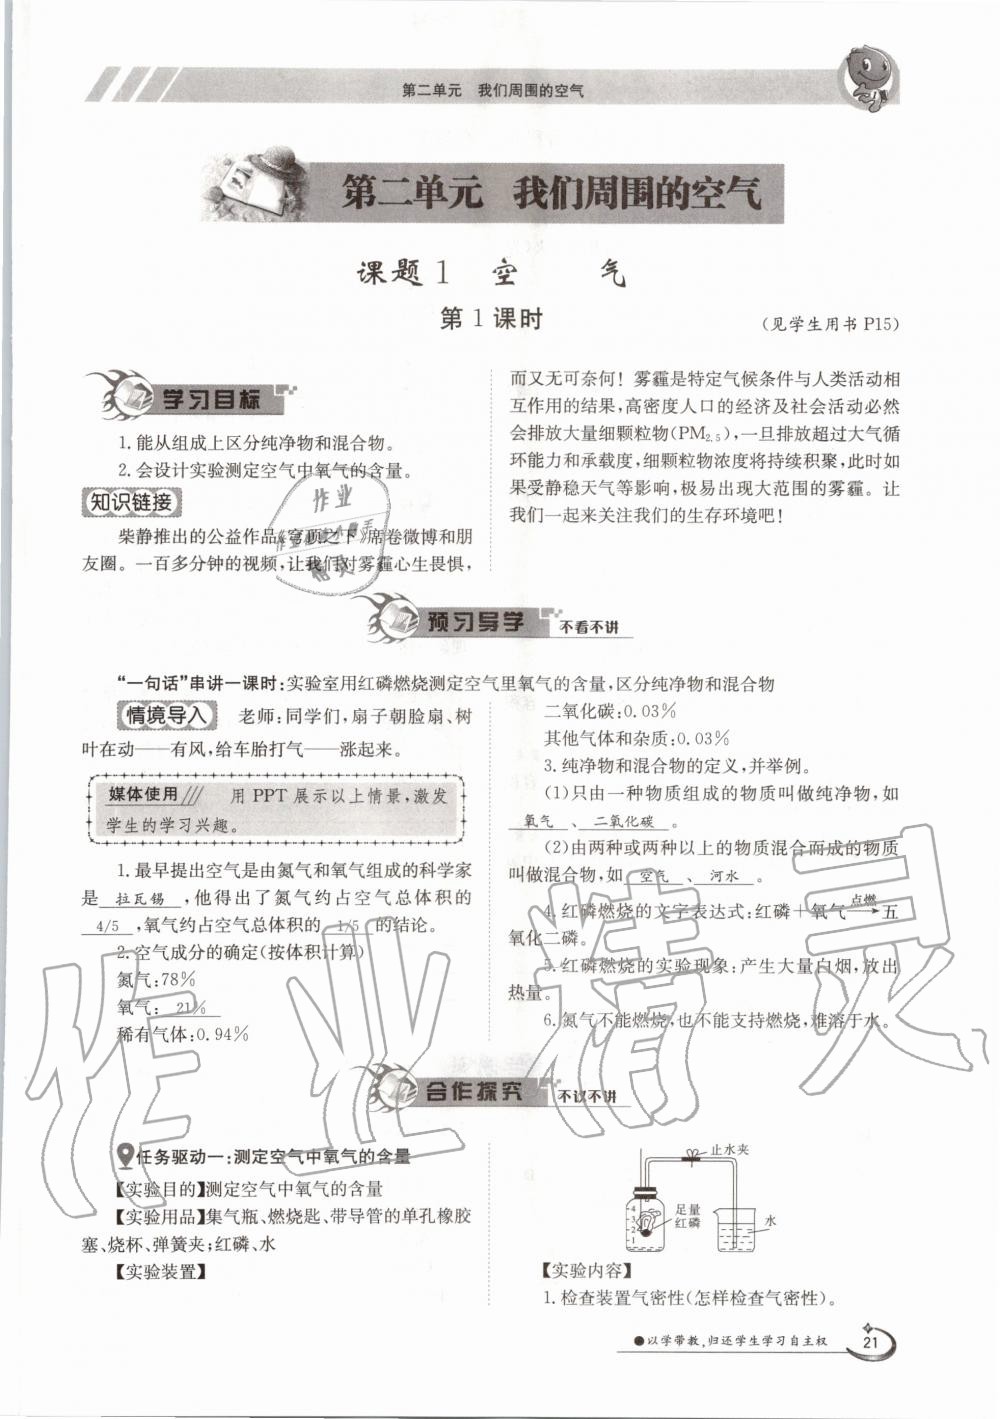 第二单元　我们周围的空气
第二单元　我们周围的空气
课题1　空　气
第1课时
(见学生用书P15)
学习目标
1.能从组成上区分纯净物和混合物。
2.会设计实验测定空气中氧气的含量。
知识链接
柴静推出的公益作品《穹顶之下》席卷微博和朋
友圈。一百多分钟的视频,让我们对雾霾心生畏惧,
而又无可奈何！雾霾是特定气候条件与人类活动相
互作用的结果,高密度人口的经济及社会活动必然
会排放大量细颗粒物(PM2.5),一旦排放超过大气循
环能力和承载度,细颗粒物浓度将持续积聚,此时如
果受静稳天气等影响,极易出现大范围的雾霾。让
我们一起来关注我们的生存环境吧！
预习导学　不看不讲
“一句话”串讲一课时:实验室用红磷燃烧测定空气里氧气的含量,区分纯净物和混合物
情境导入　老师:同学们,扇子朝脸扇、树
叶在动——有风,给车胎打气——涨起来。
媒体使用///　用PPT展示以上情景,激发
学生的学习兴趣。
1.最早提出空气是由氮气和氧气组成的科学家
是 拉瓦锡 ,他得出了氮气约占空气总体积的
4/5 ,氧气约占空气总体积的 1/5 的结论。
2.空气成分的确定(按体积计算)
氮气:78%
氧气: 21%
稀有气体:0.94%
二氧化碳:0.03%
其他气体和杂质:0.03%
3.纯净物和混合物的定义,并举例。
(1)只由一种物质组成的物质叫做纯净物,如
氧气 、 二氧化碳 。
(2)由两种或两种以上的物质混合而成的物质
叫做混合物,如 空气 、 河水 。
4.红磷燃烧的文字表达式:红磷+氧气 点燃→ 五
氧化二磷。
5.红磷燃烧的实验现象:产生大量白烟,放出
热量。
6.氮气不能燃烧,也不能支持燃烧,难溶于水。
合作探究　不议不讲
任务驱动一:测定空气中氧气的含量
【实验目的】测定空气中氧气的含量
【实验用品】集气瓶、燃烧匙、带导管的单孔橡胶
塞、烧杯、弹簧夹;红磷、水
【实验装置】
止水夹
足量
红磷
水
4
3
2
1
【实验内容】
1.检查装置气密性(怎样检查气密性)。
●以学带教,归还学生学习自主权
21
作业
精灵
作业精灵